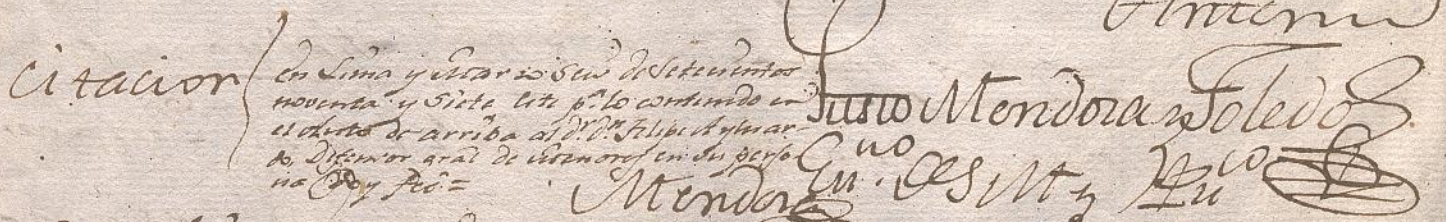 Antoni
Citacion
en Lima y Marzo Seis de Setecientos
noventa y Siete cite pa. lo contenido en
el Auto de arriba al Dr. Dn. Felipe
Defensor gral de Menores en su perso
na Doy fee =
Mendoza
Justo Mendoza y Toledo
Esno. de S M y Puco